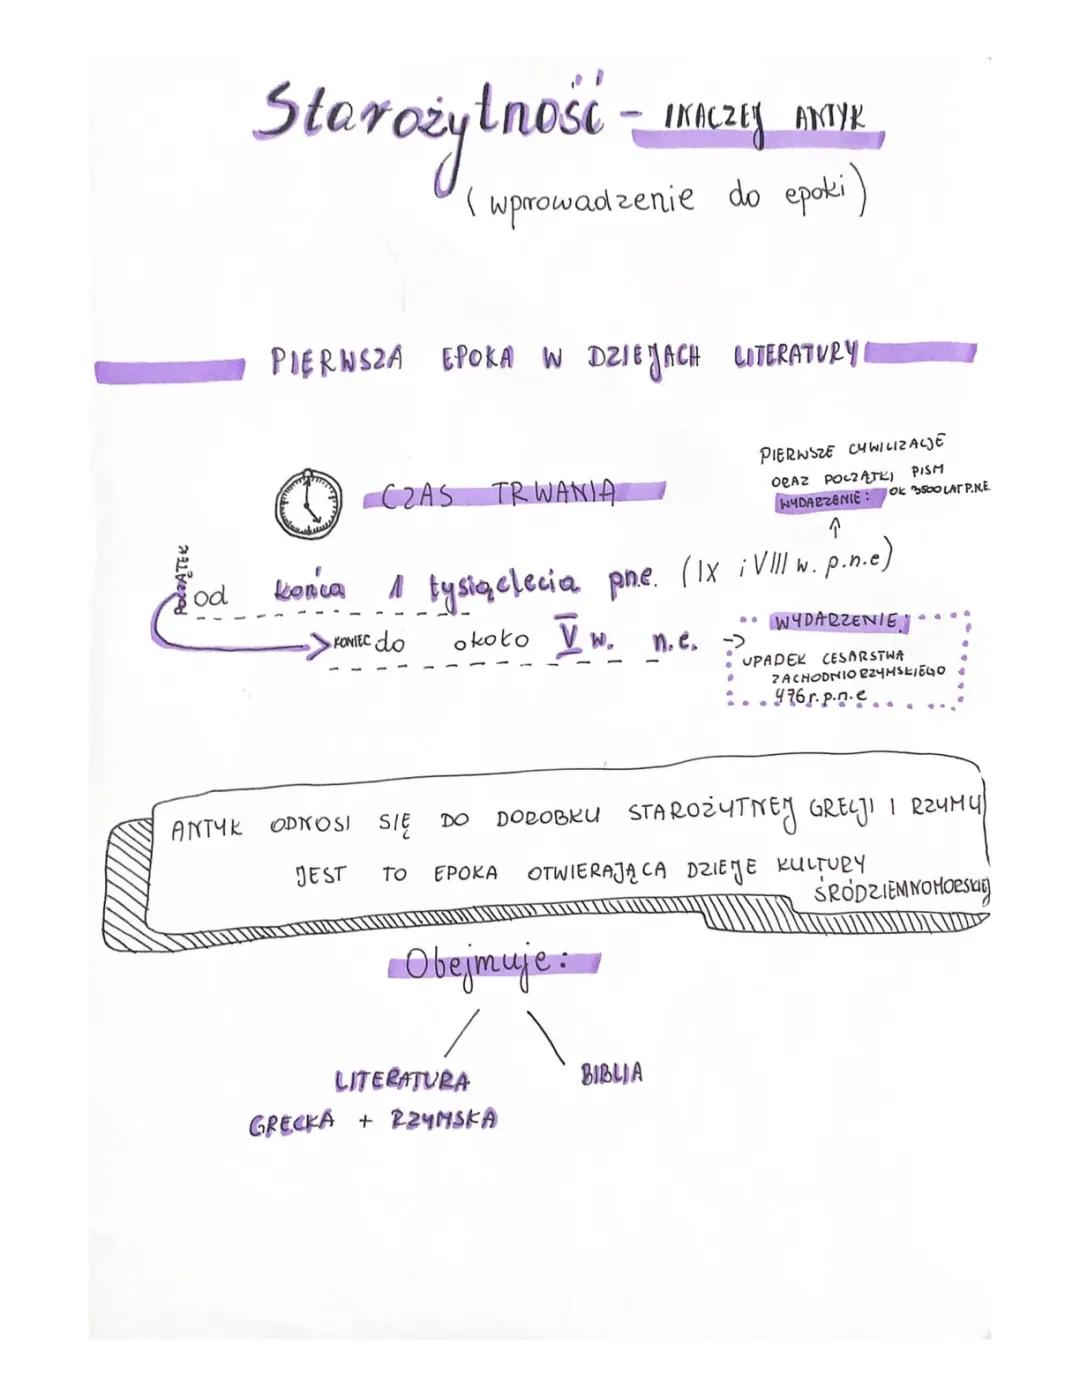 Starożytność - INACZEJ ANTYK
(wprowadzenie do epoki)
PIERWSZA EPOKA W DZIEJACH LITERATURY
CZAS TRWANIA
PIERWSZE CYWILIZACJE
ORAZ POCZĄTKI PISM
WYDARZENIE: OK 3500 LAT P.N.E
POCZĄTEK
od końca 1 tysiąclecia pne. (IX i VIII w. p.n.e)
KONIEC do około V w. n.e. ->
WYDARZENIE:
UPADEK CESARSTWA
ZACHODNIORZYMSKIEGO
476 r. p.n.e
ANTYK ODNOSI SIĘ DO DOROBKU STAROŻYTNEJ GRECJI I RZYMU
JEST TO EPOKA OTWIERAJĄCA DZIEJE KULTURY
ŚRÓDZIEMNOMORSKIEJ
Obejmuje:
LITERATURA
GRECKA + RZYMSKA
BIBLIA